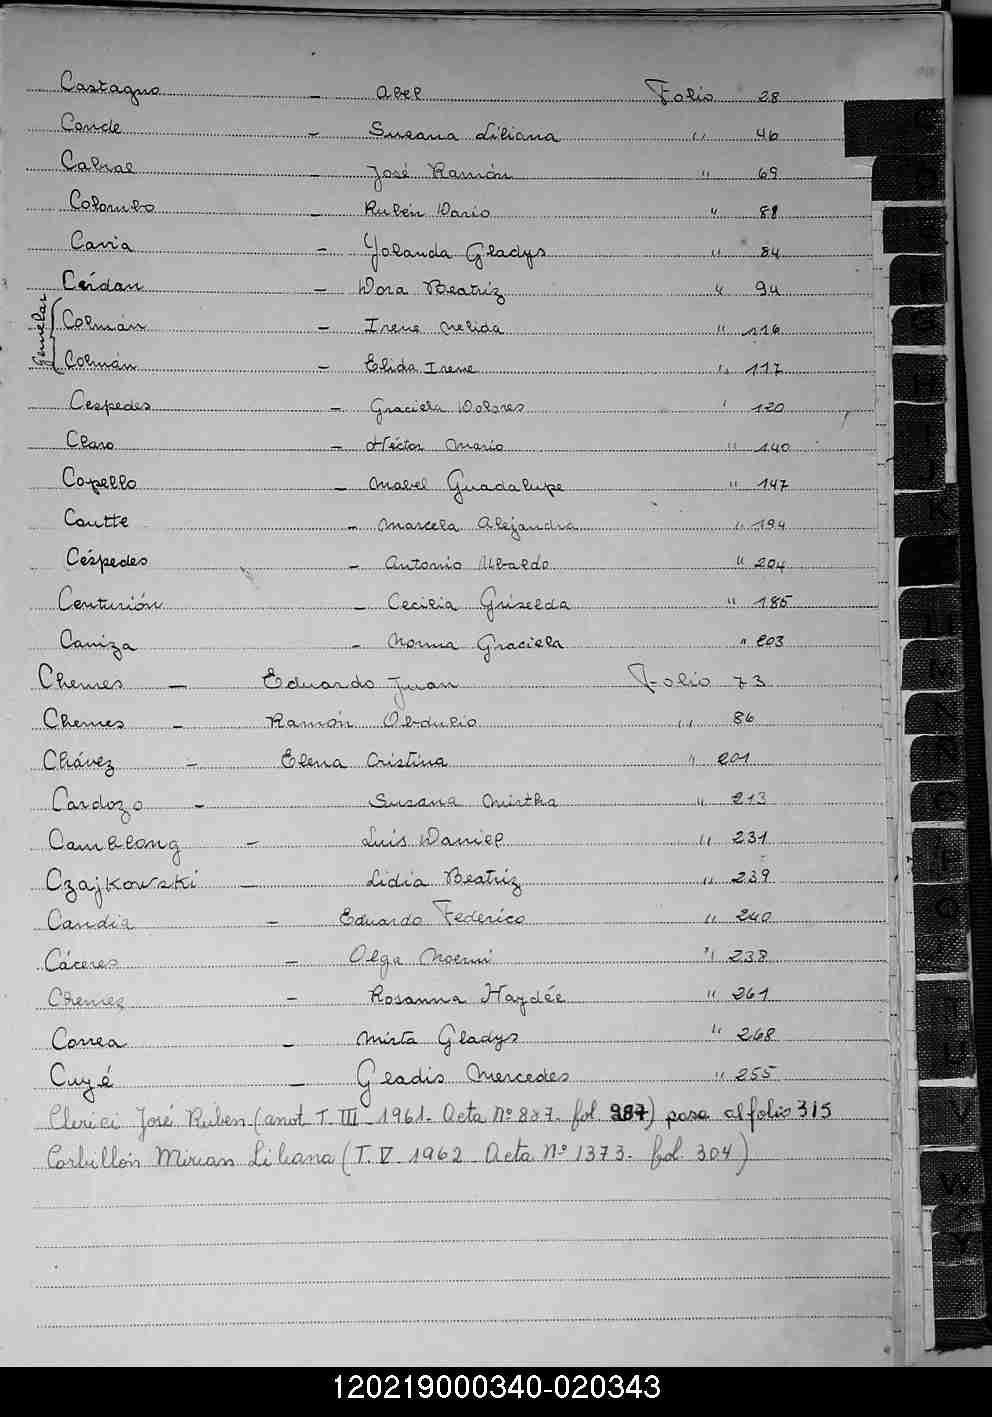 Castagno - Abel Folio 28
Conde - Susana Liliana " 46
Cabral - José Ramón " 69
Colombo - Rubén Dario " 81
Cavia - Yolanda Gladys " 84
Ceridan - Dora Beatriz " 94
Gemelas
Colmán - Irene Nelida " 116
Colmán - Elida Irene " 117
Cespedes - Graciela Dolores " 120
Claro - Héctor Mario " 140
Copello - Mabel Guadalupe " 147
Coutte - Marcela Alejandra " 194
Céspedes - Antonio Ubaldo " 204
Centurión - Cecilia Griselda " 185
Caniza - Norma Graciela " 203
Chemes - Eduardo Juan Folio 73
Chemes - Ramón Obdulio " 86
Chávez - Elena Cristina " 201
Cardozo - Susana Mirtha " 213
Camblong - Luis Daniel " 231
Czajkowski - Lidia Beatriz " 239
Candia - Eduardo Federico " 240
Cáceres - Olga Noemi " 238
Chemes - Rosanna Haydée " 261
Correa - Mirta Gladys " 268
Cuyé - Gladis Mercedes " 255
Clerici José Ruben (anot T. III 1961. Acta Nº 887. fol 287) pasa al folio 315
Corbillón Mirian Liliana (T. V 1962 Acta Nº 1373. fol 304)
120219000340-020343